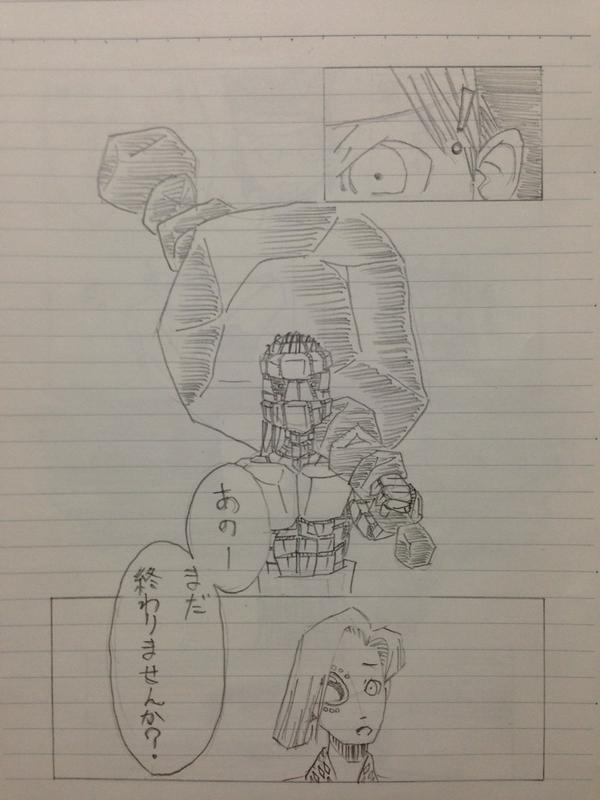 あのー
まだ
終わりませんか?.